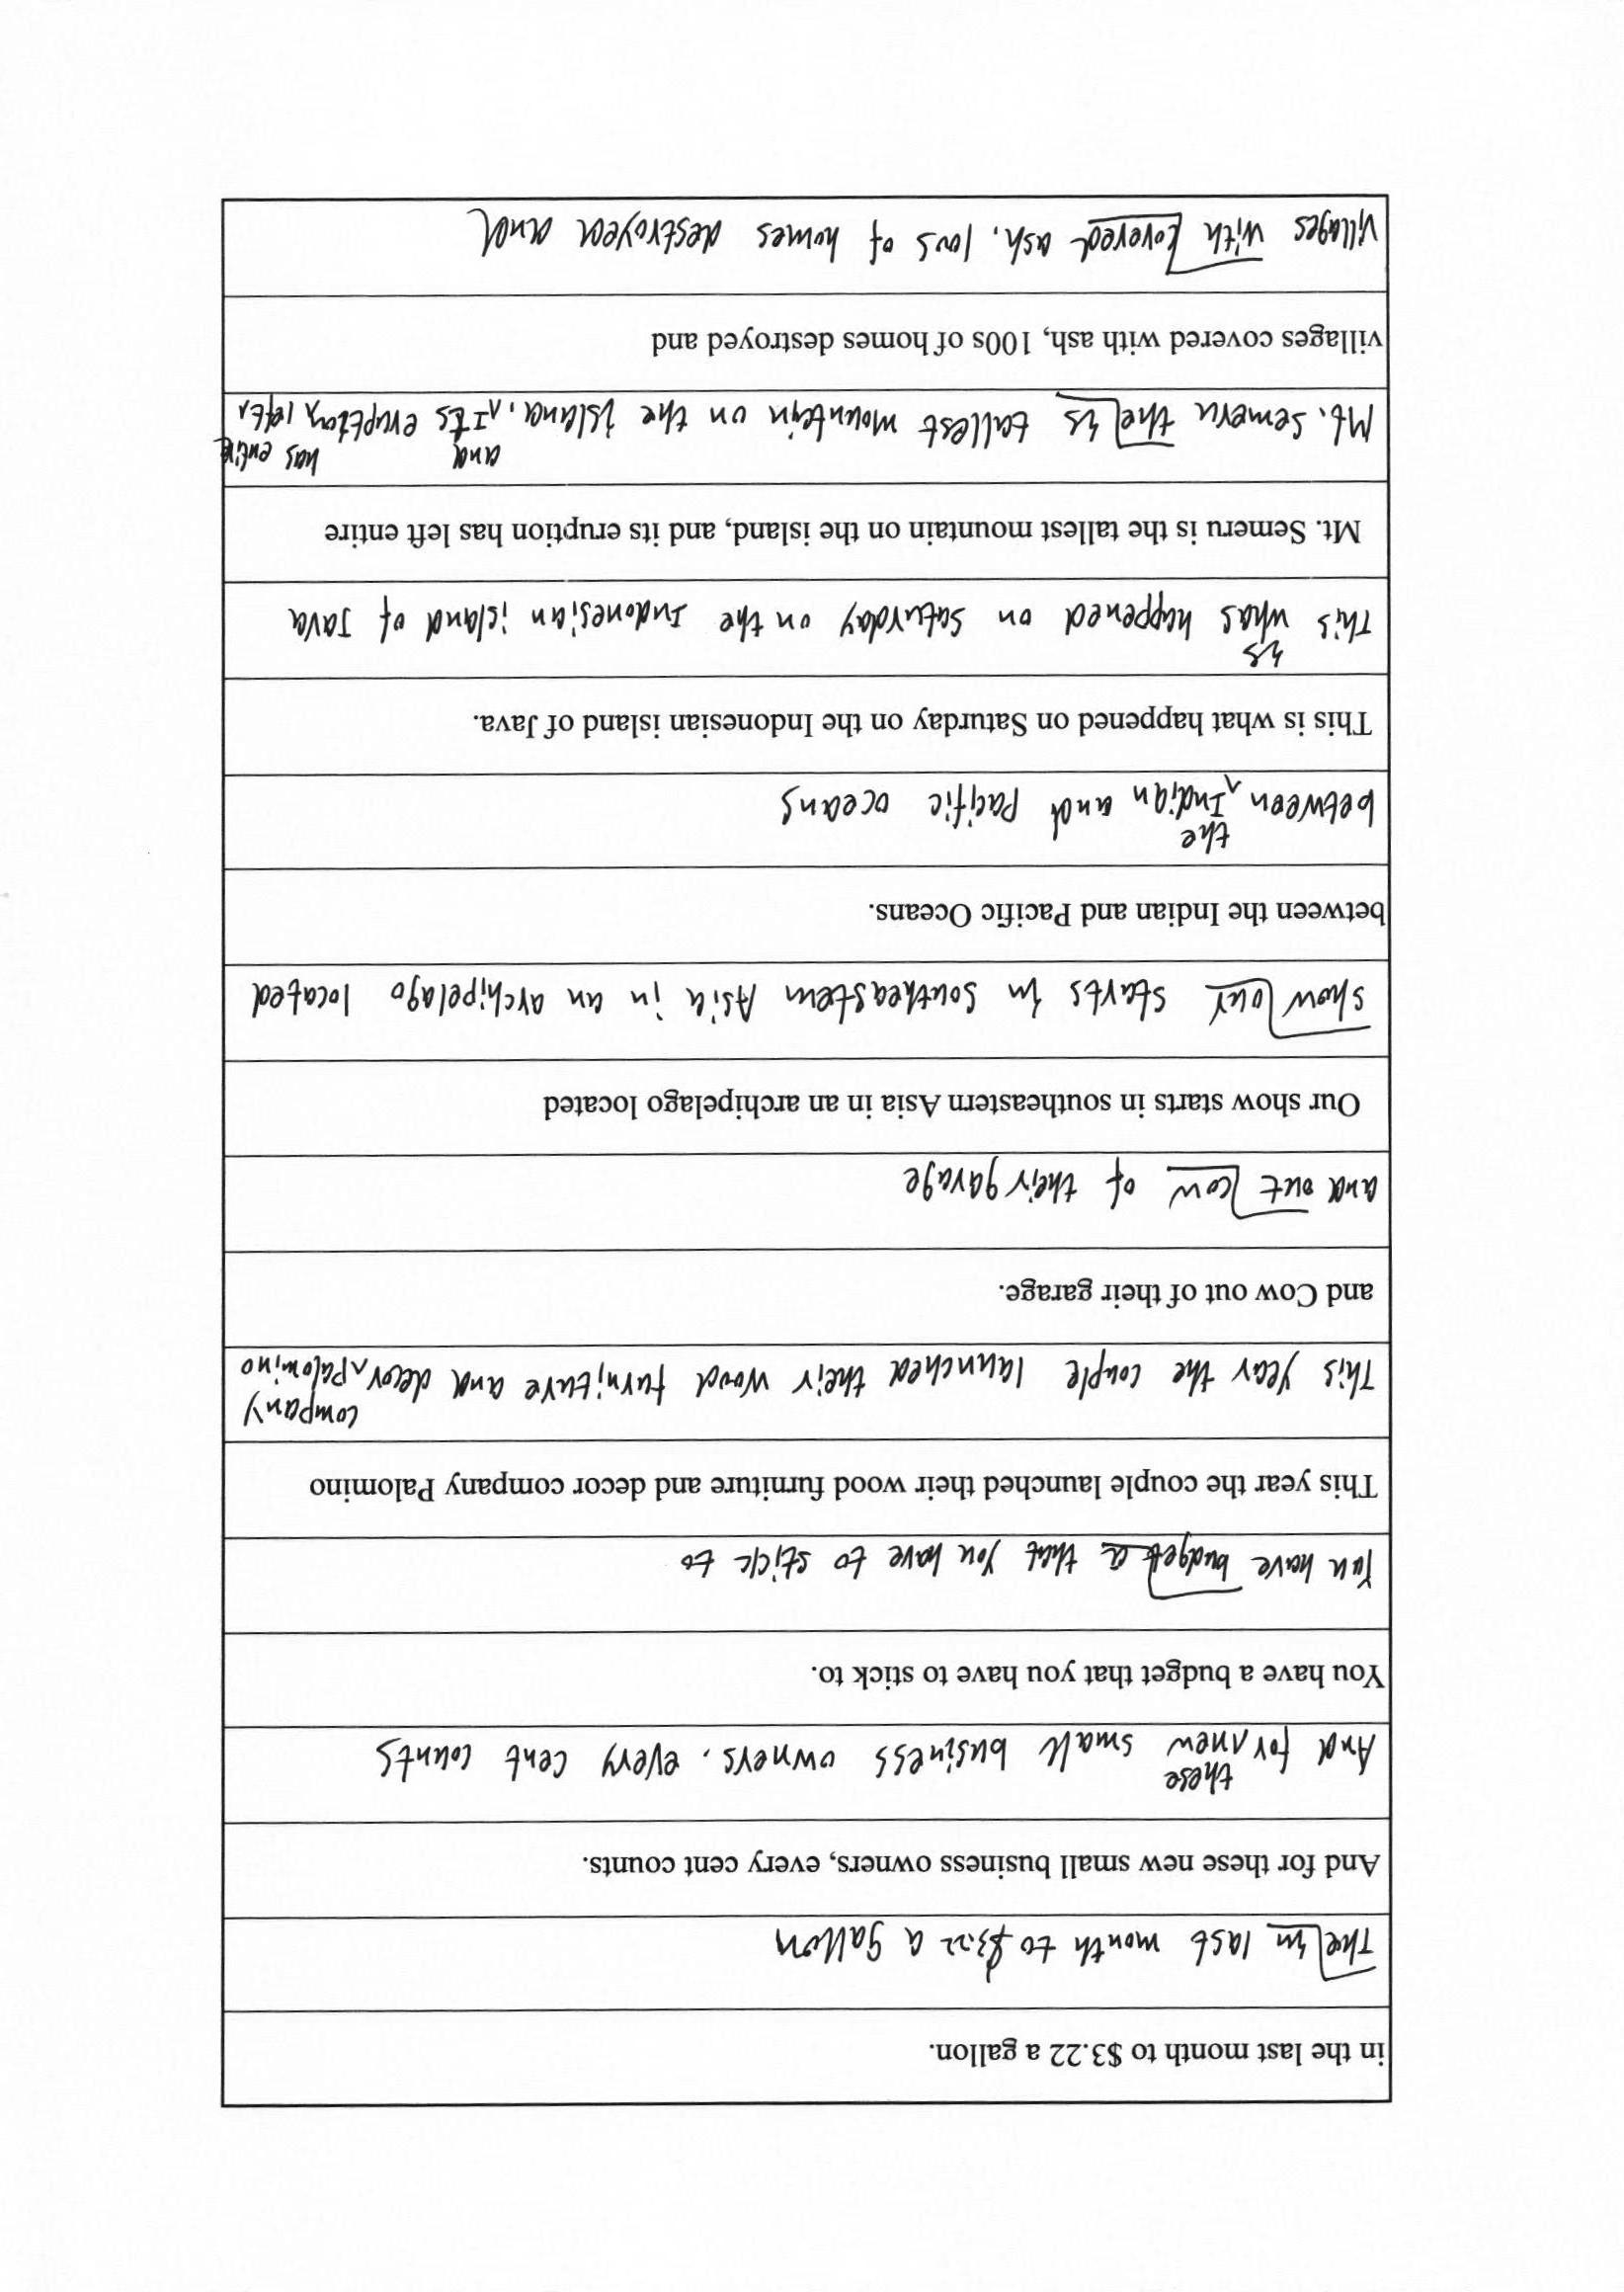 in the last month to $3.22 a gallon.
The in last month to $3.22 a gallon
And for these new small business owners, every cent counts.
these
And for new small business owners, every cent counts
You have a budget that you have to stick to.
You have budget a that you have to stick to
This year the couple launched their wood furniture and decor company Palomino
company
This year the couple launched their wood furniture and decor Palomino
and Cow out of their garage.
and out cow of their garage
Our show starts in southeastern Asia in an archipelago located
show our starts in Southeastern Asia in an archipelago located
between the Indian and Pacific Oceans.
the
between Indian and Pacific oceans
This is what happened on Saturday on the Indonesian island of Java.
is
This whas happened on Saturday on the Indonesian island of Java
Mt. Semeru is the tallest mountain on the island, and its eruption has left entire
and has entire
Mt. Semeru the is tallest mountain on the island, Its eruption left
villages covered with ash, 100s of homes destroyed and
villages with covered ash, 100s of homes destroyed and